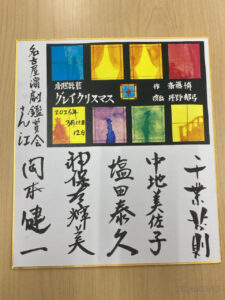 劇団民藝
グレイクリスマス
作 斎藤憐
演出 丹野郁弓
2025年
3月11日
12日
名古屋演劇鑑賞会
さん江
千葉茂則
中地美佐子
塩田泰久
神保有輝美
岡本健一